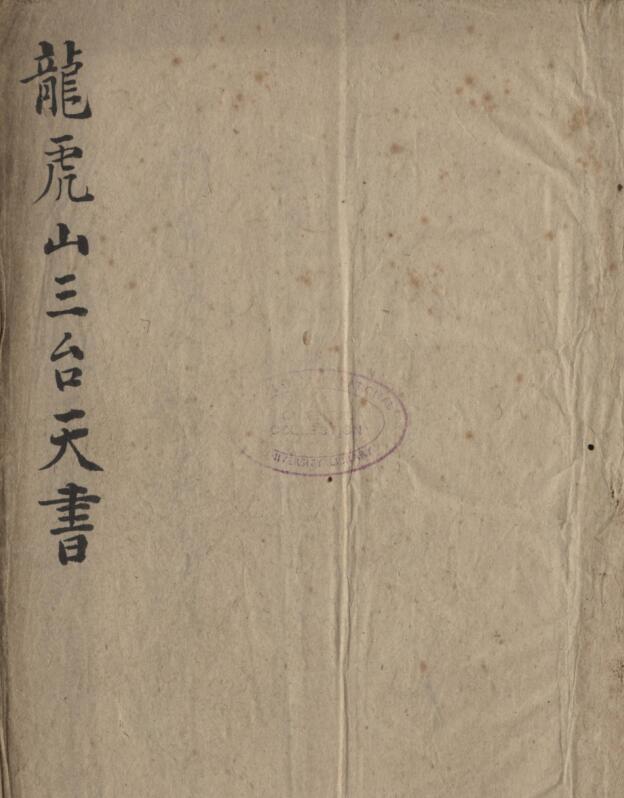 龍虎山三台天書
COLLECTION